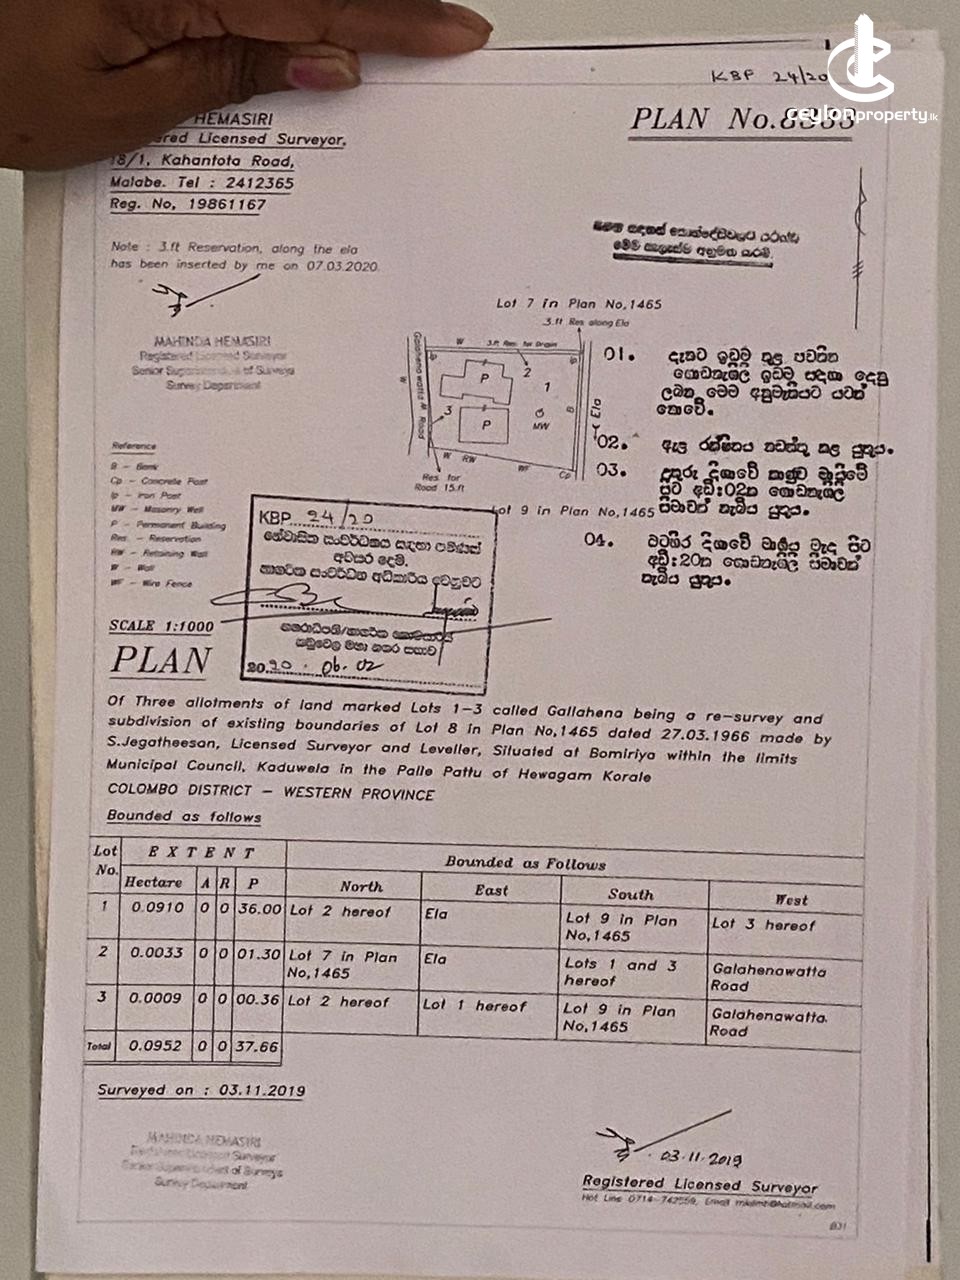 KBP 24/20
ceylonproperty.lk
HEMASIRI
Licensed Surveyor,
18/1, Kahantota Road,
Malabe. Tel : 2412365
Reg. No, 19861167
PLAN No.8383
Note : 3.ft Reservation, along the ela
has been inserted by me on 07.03.2020.
MAHINDA HEMASIRI
Registered Licensed Surveyor
Senior Superintendent of Surveys
Survey Department
Lot 7 in Plan No,1465
3.ft Res along Ela
W
3.ft Res. for Drain
Ip
Ip
Galahena watta Road
W
P
2
1
3
P
MW
B
Ela
W
RW
WF
Cp
Res. for
Road 15.ft
Lot 9 in Plan No,1465
01. දැනට ඉඩම තුළ පවතින
ගොඩනැගිලි ඉඩම සඳහා දෙනු
ලබන මෙම අනුමැතියට යටත්
නොවේ.
02. ඇල රක්ෂිතය නඩත්තු කළ යුතුය.
03. උතුරු දිශාවේ කාණුව මායිමේ
සිට අඩි:02ක ගොඩනැගිලි
සීමාවක් තැබිය යුතුය.
04. බටහිර දිශාවේ මාර්ගය මැද සිට
අඩි:20ක ගොඩනැගිලි සීමාවක්
තැබිය යුතුය.
Reference
B - Bank
Cp - Concrete Post
Ip - Iron Post
MW - Masonry Well
P - Permanent Building
Res. - Reservation
RW - Retaining Wall
W - Wall
WF - Wire Fence
KBP 24/20
නේවාසික සංවර්ධනය සඳහා පමණක්
අවසර දෙමි.
නාගරික සංවර්ධන අධිකාරිය වෙනුවට
නගරාධිපති/නාගරික කොමසාරිස්
කඩුවෙල මහා නගර සභාව
2020.06.02
SCALE 1:1000
PLAN
Of Three allotments of land marked Lots 1-3 called Gallahena being a re-survey and
subdivision of existing boundaries of Lot 8 in Plan No,1465 dated 27.03.1966 made by
S.Jegatheesan, Licensed Surveyor and Leveller, Situated at Bomiriya within the limits
Municipal Council, Kaduwela in the Palle Pattu of Hewagam Korale
COLOMBO DISTRICT - WESTERN PROVINCE
Bounded as follows
Lot No. EXTENT Bounded as Follows
Hectare A R P North East South West
1 0.0910 0 0 36.00 Lot 2 hereof Ela Lot 9 in Plan No,1465 Lot 3 hereof
2 0.0033 0 0 01.30 Lot 7 in Plan No,1465 Ela Lots 1 and 3 hereof Galahenawatta Road
3 0.0009 0 0 00.36 Lot 2 hereof Lot 1 hereof Lot 9 in Plan No,1465 Galahenawatta Road
Total 0.0952 0 0 37.66
Surveyed on : 03.11.2019
MAHINDA HEMASIRI
Registered Licensed Surveyor
Senior Superintendent of Surveys
Survey Department
03.11.2019
Registered Licensed Surveyor
Hot Line 0714-742559, Email